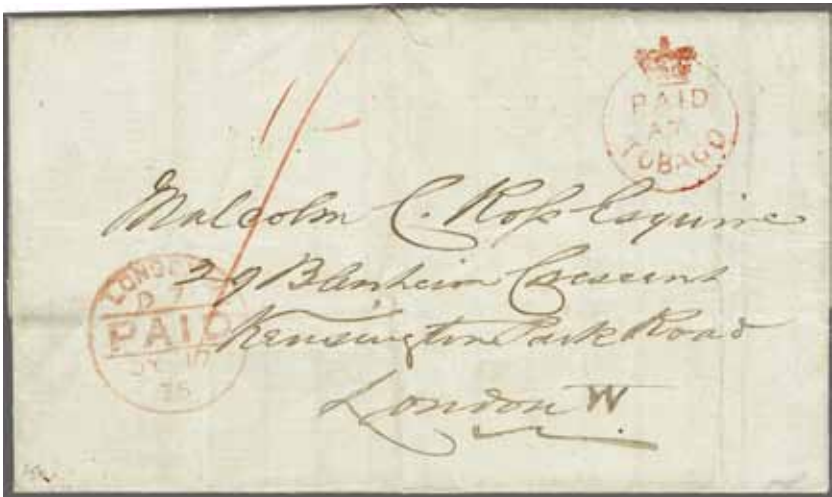 1/-
PAID
AT
TOBAGO
Malcolm C. Ross Esquire
29 Blenheim Crescent
Kensington Park Road
London W
LONDON
PAID